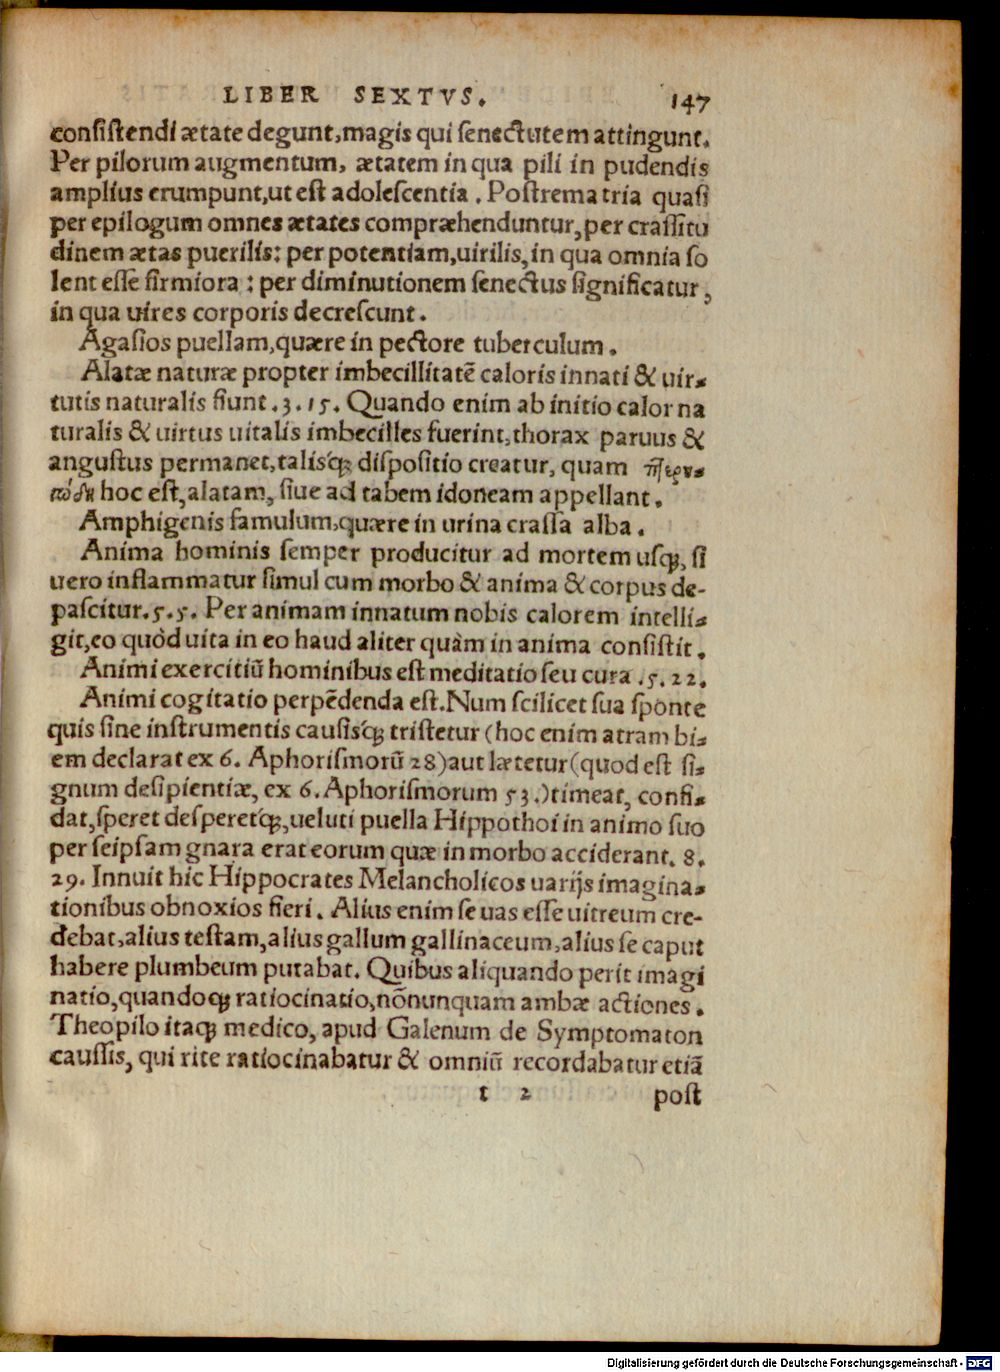 LIBER SEXTVS. 147
consistendi ætate degunt, magis qui senectutem attingunt.
Per pilorum augmentum, ætatem in qua pili in pudendis
amplius erumpunt, ut est adolescentia. Postrema tria quasi
per epilogum omnes ætates compræhenduntur, per crassitu
dinem ætas puerilis: per potentiam, uirilis, in qua omnia so
lent esse firmiora: per diminutionem senectus significatur,
in qua uires corporis decrescunt.
Agasios puellam, quære in pectore tuberculum.
Alatæ naturæ propter imbecillitatẽ caloris innati & uir-
tutis naturalis fiunt. 3. 15. Quando enim ab initio calor na
turalis & uirtus uitalis imbecilles fuerint, thorax paruus &
angustus permanet, talisq́; dispositio creatur, quam πτερυ-
γώδη hoc est, alatam, siue ad tabem idoneam appellant.
Amphigenis famulum, quære in urina crassa alba.
Anima hominis semper producitur ad mortem usq;, si
uero inflammatur simul cum morbo & anima & corpus de-
pascitur. 5. 5. Per animam innatum nobis calorem intelli-
git, eo quòd uita in eo haud aliter quàm in anima consistit.
Animi exercitiũ hominibus est meditatio seu cura. 5. 22.
Animi cogitatio perpẽdenda est. Num scilicet sua sponte
quis sine instrumentis causisq́; tristetur (hoc enim atram bi-
em declarat ex 6. Aphorismorũ 28) aut lætetur (quod est si-
gnum desipientiæ, ex 6. Aphorismorum 53.) timeat, confi-
dat, speret desperetq́;, ueluti puella Hippothoi in animo suo
per seipsam gnara erat eorum quæ in morbo acciderant. 8.
29. Innuit hic Hippocrates Melancholicos uarijs imagina-
tionibus obnoxios fieri. Alius enim se uas esse uitreum cre-
debat, alius testam, alius gallum gallinaceum, alius se caput
habere plumbeum putabat. Quibus aliquando perit imagi
natio, quandoq; ratiocinatio, nõnunquam ambæ actiones.
Theopilo itaq; medico, apud Galenum de Symptomaton
caussis, qui rite ratiocinabatur & omniũ recordabatur etiã
t 2 post
Digitalisierung gefördert durch die Deutsche Forschungsgemeinschaft - DFG